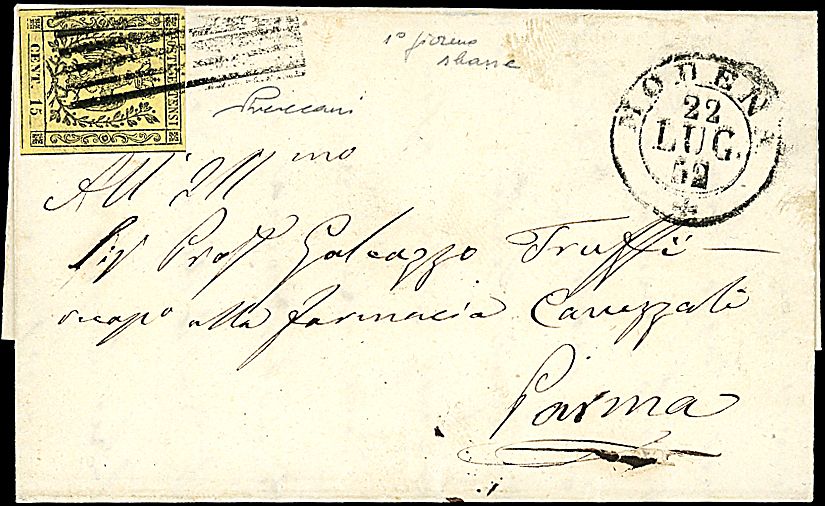 POSTE ESTENSI
CENT. 15
1° giorno
sbarre
MODENA
22
LUG.
52
All' Ill mo
Sig Prof Galeazzo Truffi
recapo alla farmacia
Parma